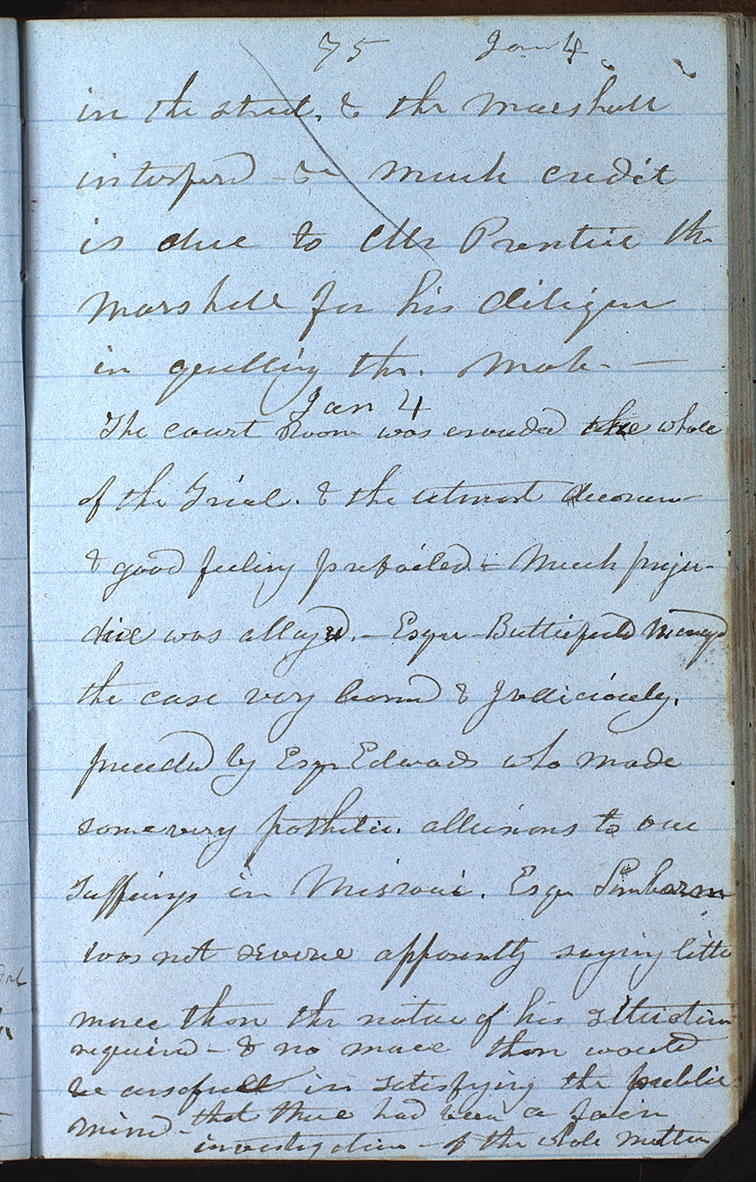 75 Jan 4
in the street. & the Marshall
interfered - & much credit
is due to Mr Prentice the
Marshall for his diligence
in quelling the. Mob. —
Jan 4
The court Room was crouded the whole
of the Trial. & the utmost decorum
& good feeling prevailed - Much preju-
dice was allayed. - Esqr Butterfield Managd
the case very learned & Judiciously.
preceded by Esqr Edwards who made
some very pathetic. allusions to our
Suffings in Missouri. Esqr
was not severe apparently saying little
more than the nature of his Situation
required - & no more than would
be usefull in satisfying the public
mind - that there had been a fair
investigation - of the whole matter